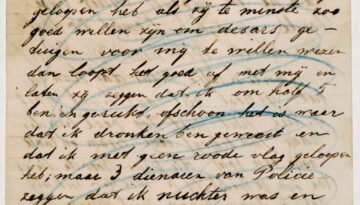 geloopen heb als zij te minste zoo
goed willen zijn om desars ge-
tuigen voor mij te willen wezen
dan loopt het goed af met mij en
laten zij zeggen dat ik om half 5
ben gesucht, ofschoon het is waar
dat ik dronken ben geweest en
dat ik met geen roode vlag geloopen
heb; maar 3 dienaren van Policie
zeggen dat ik nuchter was en